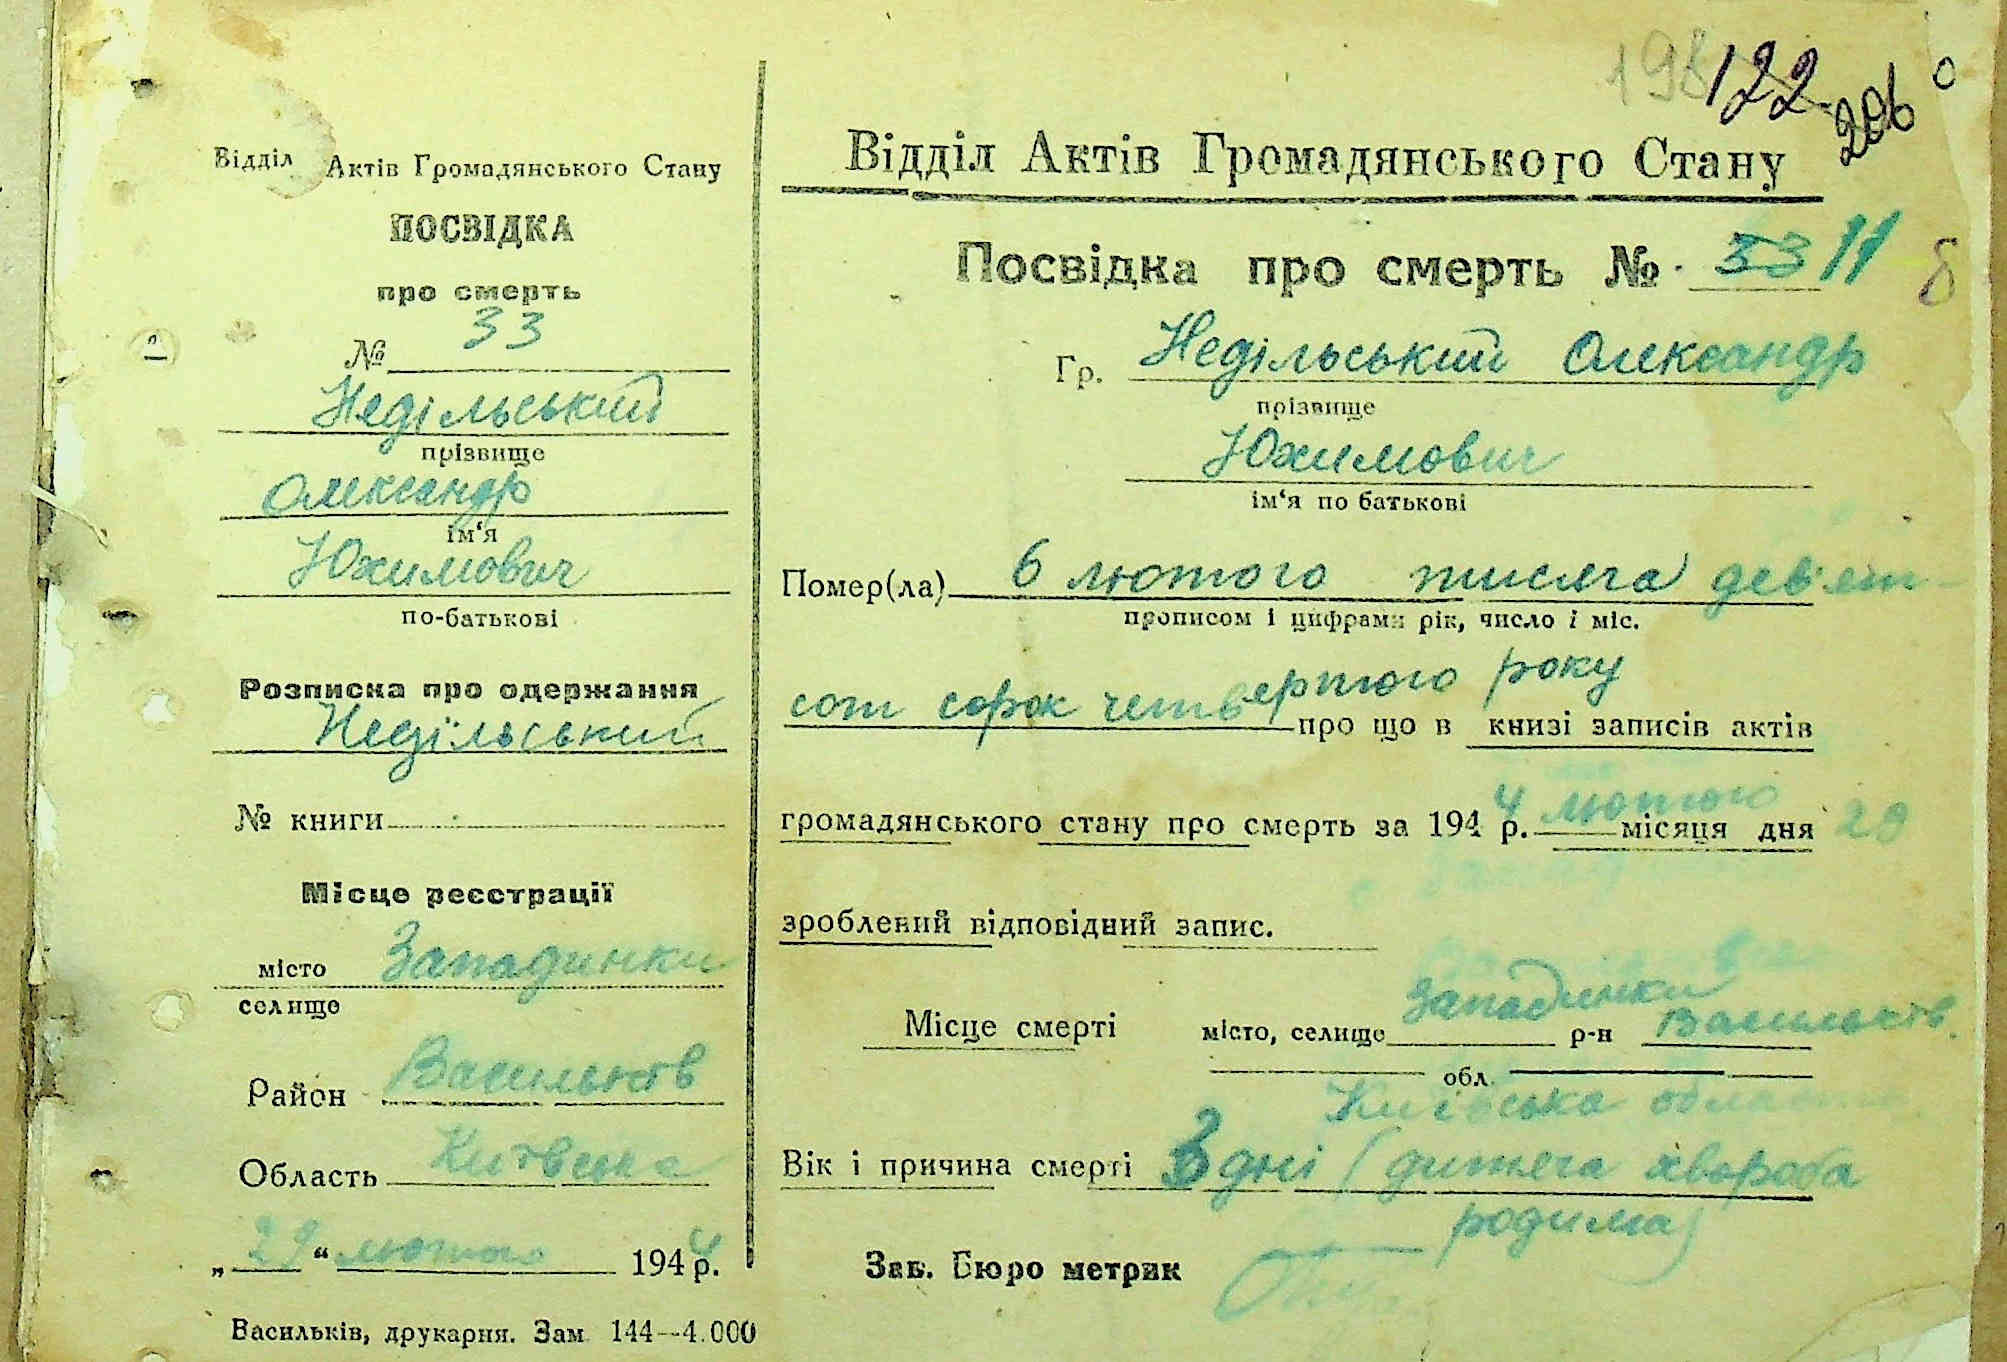 198 122 206
Відділ Актів Громадянського Стану
ПОСВІДКА
про смерть
№ 33
Недільський
прізвище
Олександр
ім'я
Юхимович
по-батькові
Розписка про одержання
Недільський
№ книги
Місце реєстрації
місто Западинки
селище
Район Васильків
Область Київська
„29“ лютого 1944 р.
Васильків, друкарня. Зам 144—4.000
Відділ Актів Громадянського Стану
Посвідка про смерть № 33 11
8
Гр. Недільський Олександр
прізвище
Юхимович
ім'я по батькові
Помер(ла) 6 лютого тисяча девят-
прописом і цифрами рік, число і міс.
сот сорок четвертого року про що в книзі записів актів
громадянського стану про смерть за 1944 р. лютого місяця дня 29
зроблений відповідний запис.
Місце смерті місто, селище Западинки р-н Васильків.
обл.
Київська область
Вік і причина смерті 3 дні (дитяча хвороба
родима)
Зав. Бюро метрик